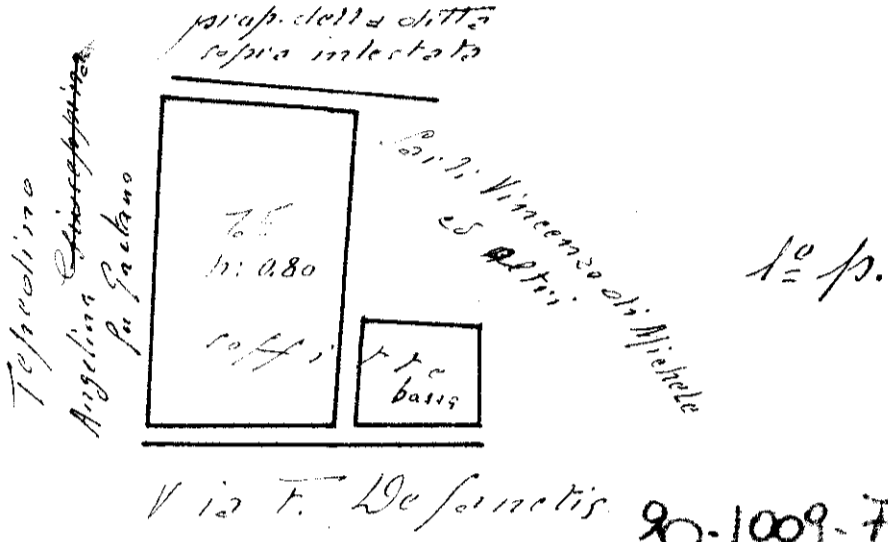 prop. della ditta
sopra intestata
Angelina Giuseppina
fu Gaetano
Vincenzo di Michele
ed altri
h: 0.80
soffitte
bassa
1º p.
Via F. De Sanctis
90-1009-7